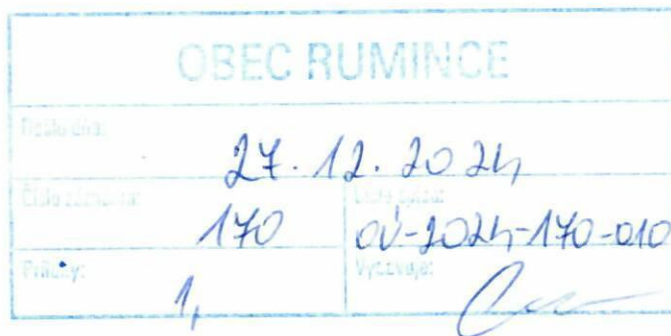 OBEC RUMINCE
Došlo dňa:
27.12.2024
Číslo záznamu: Číslo spisu:
170 OÚ-2024-170-010
Prílohy: Vybavuje:
1,